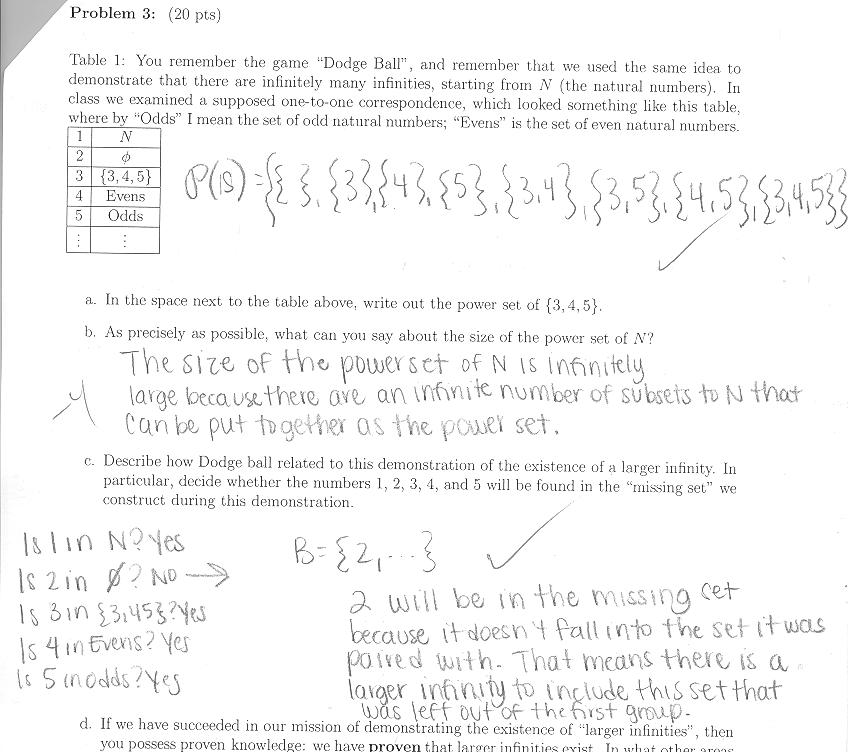 Problem 3: (20 pts)
Table 1: You remember the game “Dodge Ball”, and remember that we used the same idea to
demonstrate that there are infinitely many infinities, starting from N (the natural numbers). In
class we examined a supposed one-to-one correspondence, which looked something like this table,
where by “Odds” I mean the set of odd natural numbers; “Evens” is the set of even natural numbers.
1 N
2 ϕ
3 {3,4,5}
4 Evens
5 Odds
⋮ ⋮
P(S)={{ },{3},{4},{5},{3,4},{3,5},{4,5},{3,4,5}}
a. In the space next to the table above, write out the power set of {3,4,5}.
b. As precisely as possible, what can you say about the size of the power set of N?
The size of the powerset of N is infinitely
large because there are an infinite number of subsets to N that
can be put together as the power set.
c. Describe how Dodge ball related to this demonstration of the existence of a larger infinity. In
particular, decide whether the numbers 1, 2, 3, 4, and 5 will be found in the “missing set” we
construct during this demonstration.
Is 1 in N? Yes
Is 2 in ∅? NO →
Is 3 in {3,45}? Yes
Is 4 in Evens? Yes
Is 5 in odds? Yes
B={2,...}
2 will be in the missing set
because it doesn't fall into the set it was
paired with. That means there is a
larger infinity to include this set that
was left out of the first group.
d. If we have succeeded in our mission of demonstrating the existence of “larger infinities”, then
you possess proven knowledge: we have proven that larger infinities exist. In what other areas